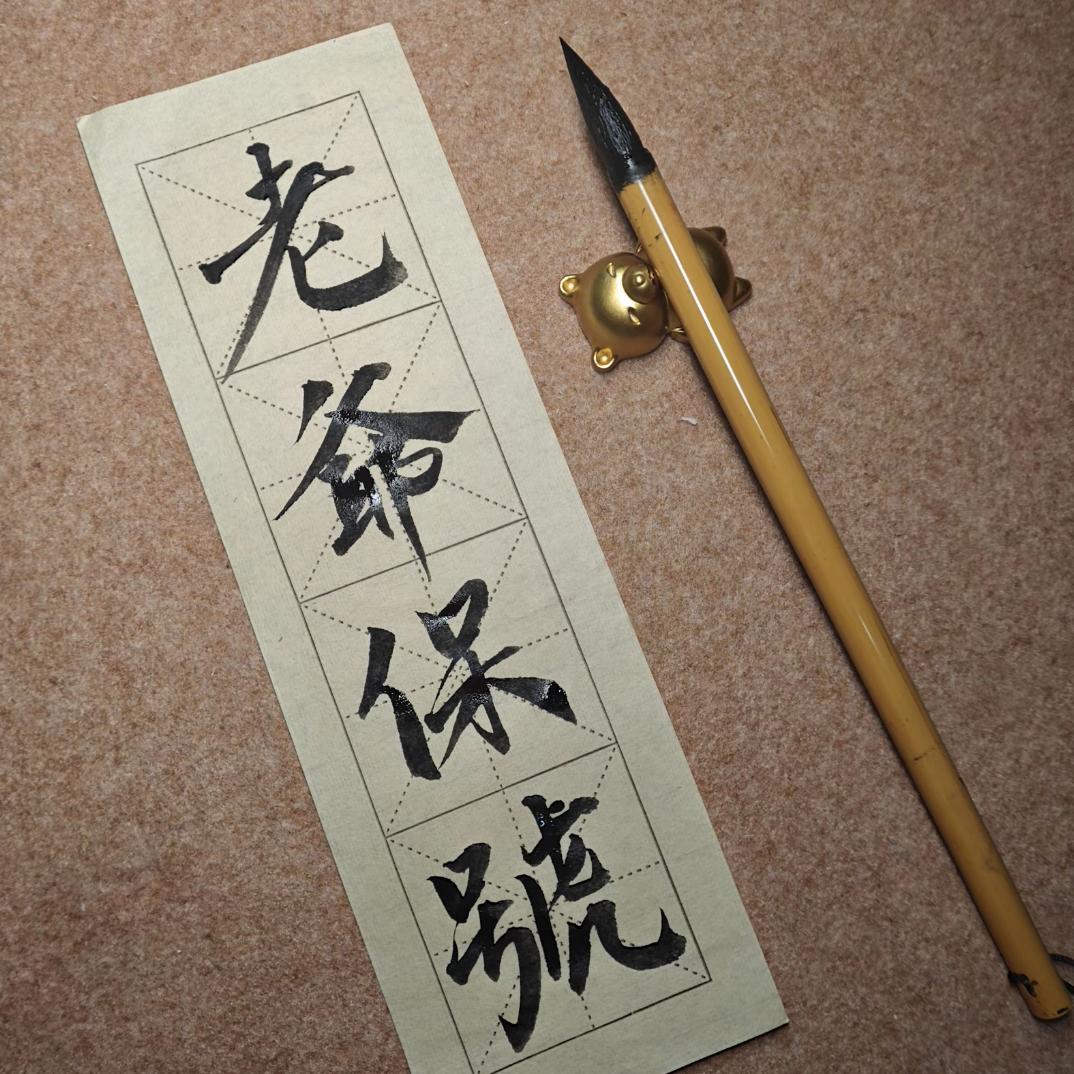 老爺保號